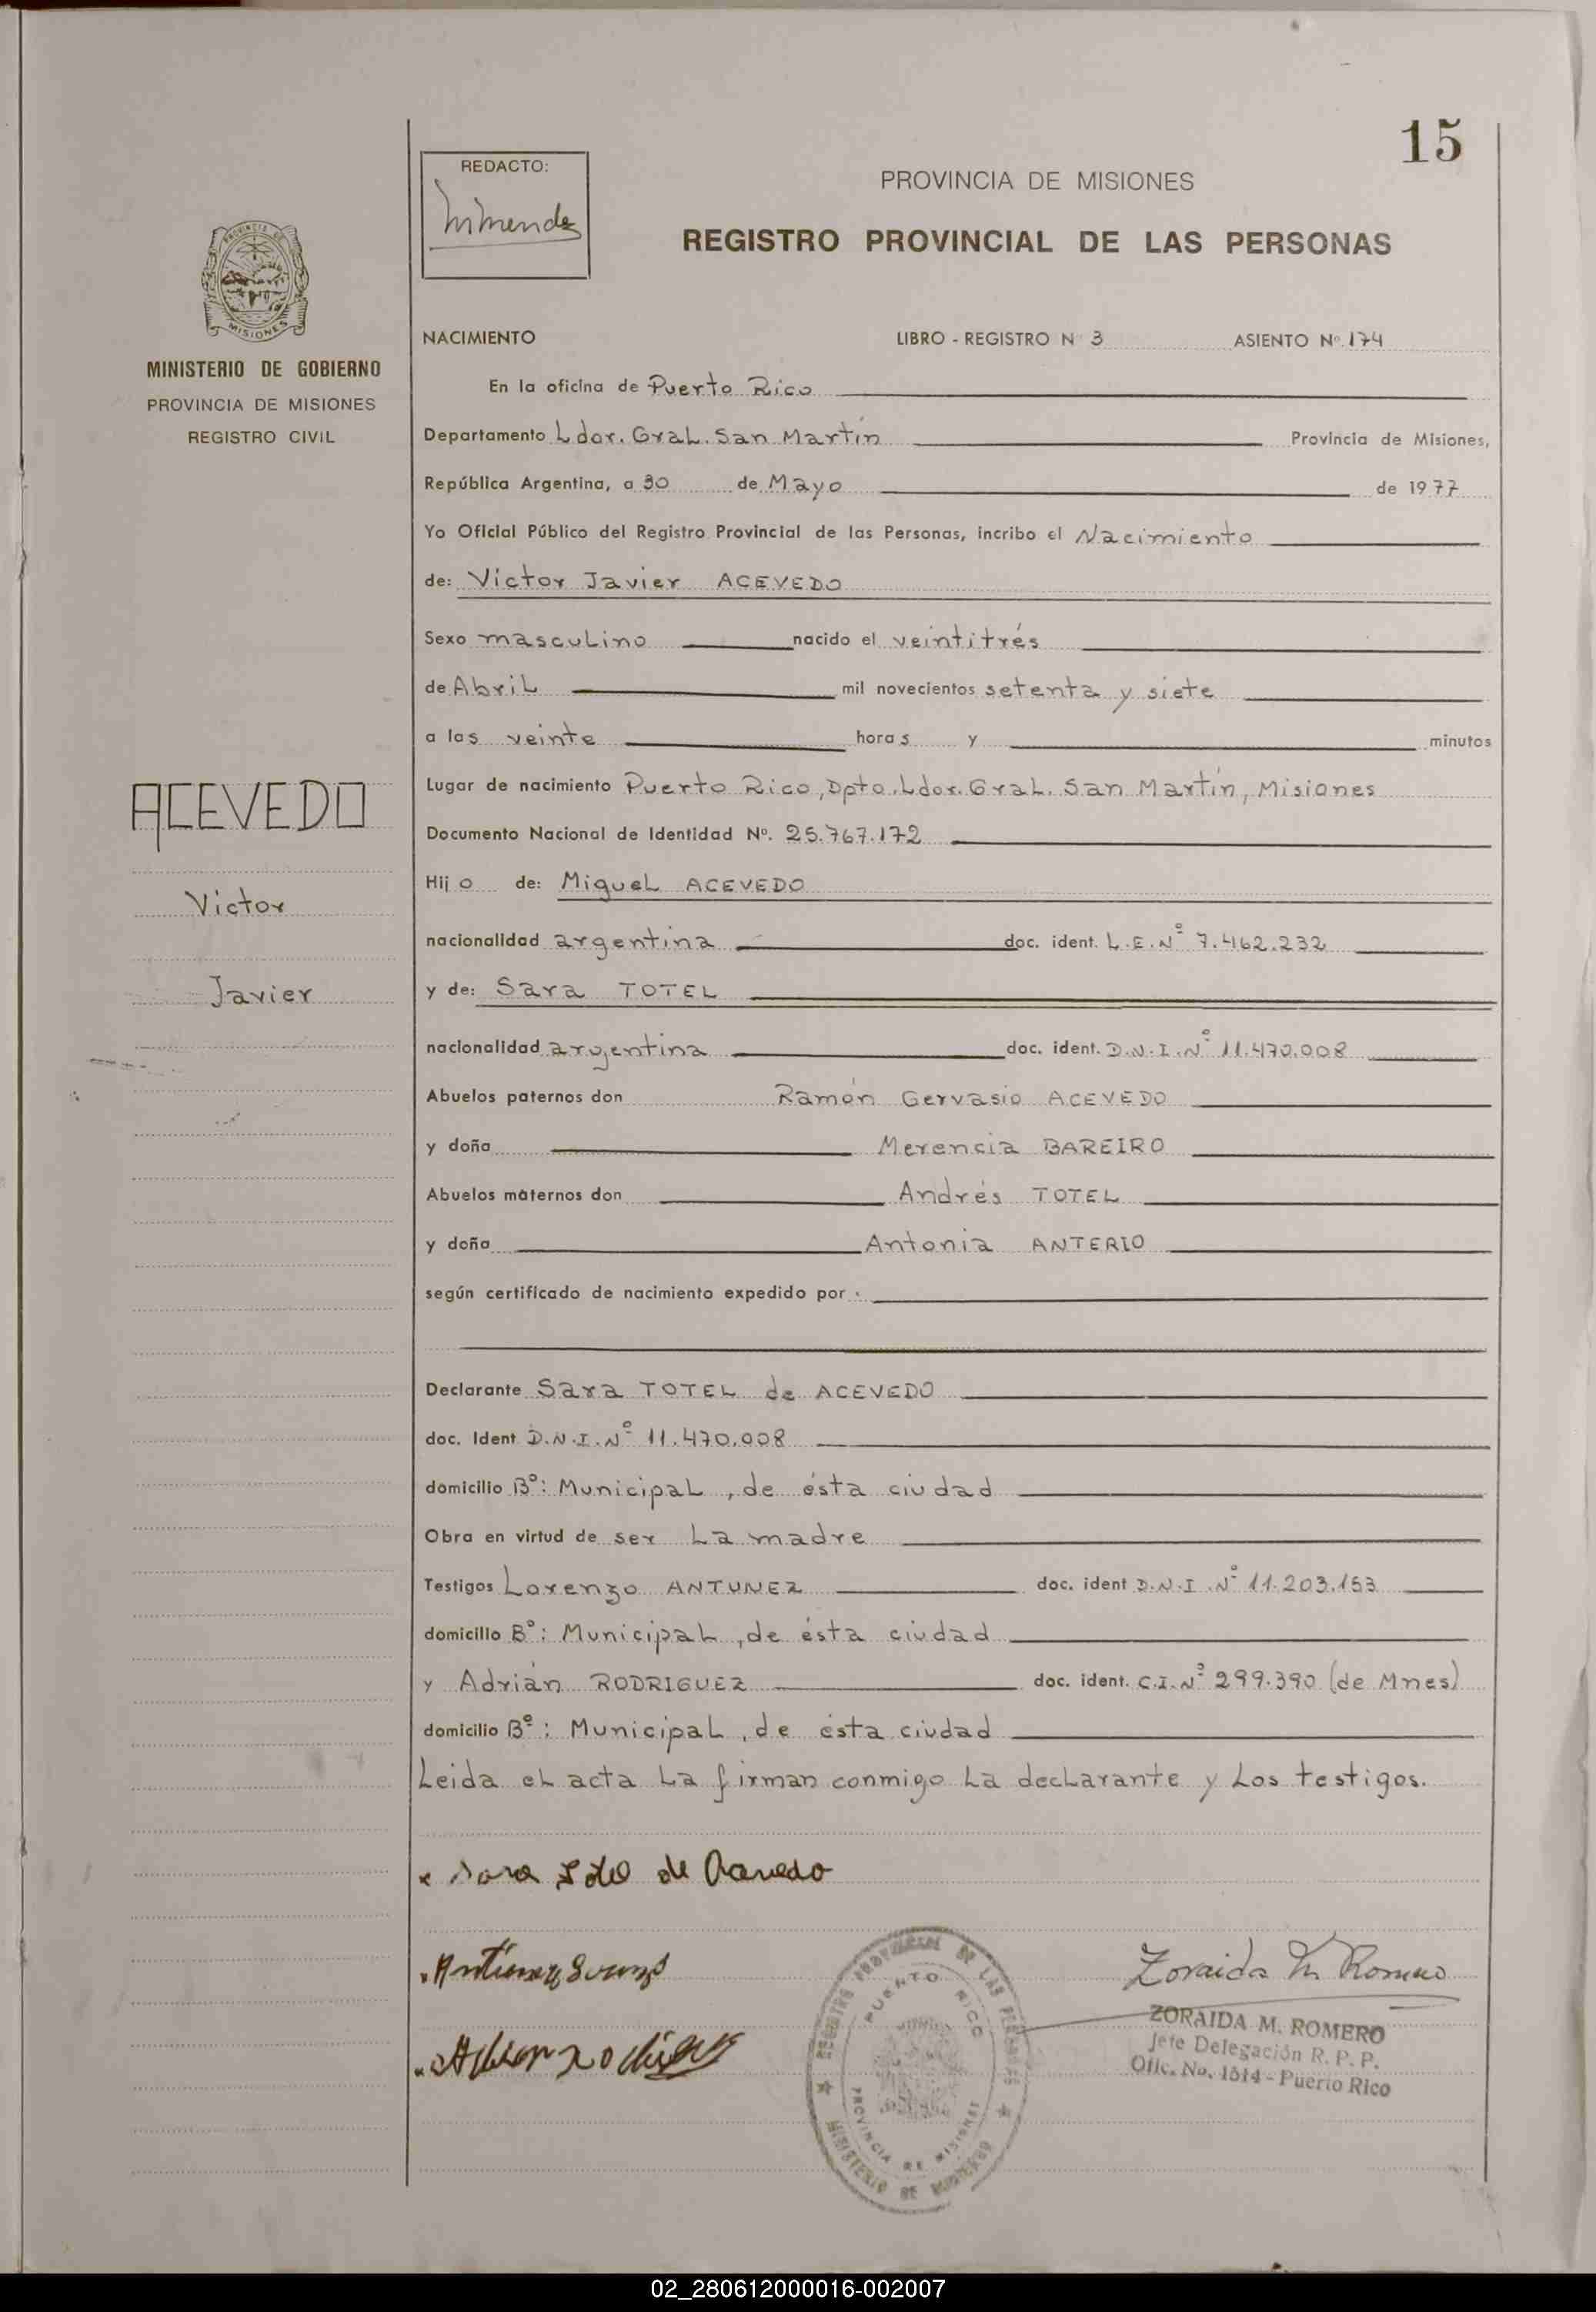 15
REDACTO:
PROVINCIA DE MISIONES
REGISTRO PROVINCIAL DE LAS PERSONAS
MISIONES
MINISTERIO DE GOBIERNO
PROVINCIA DE MISIONES
REGISTRO CIVIL
ACEVEDO
Victor
Javier
NACIMIENTO LIBRO - REGISTRO N° 3 ASIENTO Nº 174
En la oficina de Puerto Rico
Departamento Ldor. Gral. San Martín Provincia de Misiones,
República Argentina, a 30 de Mayo de 1977
Yo Oficial Público del Registro Provincial de las Personas, incribo el Nacimiento
de: Victor Javier ACEVEDO
Sexo masculino nacido el veintitrés
de Abril mil novecientos setenta y siete
a las veinte horas y minutos
Lugar de nacimiento Puerto Rico, Dpto. Ldor. Gral. San Martín, Misiones
Documento Nacional de Identidad Nº. 25.767.172
Hijo de: Miguel ACEVEDO
nacionalidad argentina doc. ident. L.E.Nº 7.462.232
y de: Sara TOTEL
nacionalidad argentina doc. ident. D.N.I.Nº 11.470.008
Abuelos paternos don Ramón Gervasio ACEVEDO
y doña Merencia BAREIRO
Abuelos maternos don Andrés TOTEL
y doña Antonia ANTERIO
según certificado de nacimiento expedido por
Declarante Sara TOTEL de ACEVEDO
doc. Ident D.N.I.Nº 11.470.008
domicilio Bº: Municipal, de ésta ciudad
Obra en virtud de ser la madre
Testigos Lorenzo ANTUNEZ doc. ident D.N.I.Nº 11.203.153
domicilio Bº: Municipal, de ésta ciudad
y Adrián RODRIGUEZ doc. ident. C.I.Nº 299.390 (de Mnes)
domicilio Bº: Municipal, de ésta ciudad
Leida el acta la firman conmigo la declarante y los testigos.
Sara Totel de Acevedo
Zoraida M. Romero
ZORAIDA M. ROMERO
Jefe Delegación R. P. P.
Ofic. No. 1514 - Puerto Rico
REGISTRO PROVINCIAL DE LAS PERSONAS
PUERTO RICO
PROVINCIA DE MISIONES
MINISTERIO DE GOBIERNO
02_280612000016-002007